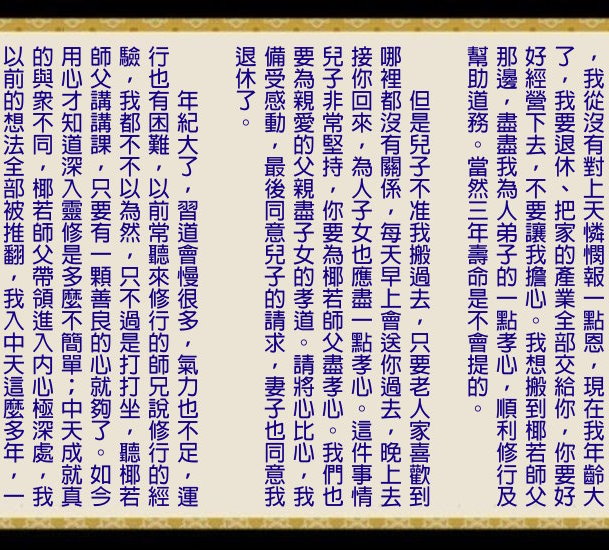 ，我從沒有對上天憐憫報一點恩，現在我年齡大
了，我要退休、把家的產業全部交給你，你要好
好經營下去，不要讓我擔心。我想搬到椰若師父
那邊，盡盡我為人弟子的一點孝心，順利修行及
幫助道務。當然三年壽命是不會提的。
但是兒子不准我搬過去，只要老人家喜歡到
哪裡都沒有關係，每天早上會送你過去，晚上去
接你回來，為人子女也應盡一點孝心。這件事情
兒子非常堅持，你要為椰若師父盡孝心。我們也
要為親愛的父親盡子女的孝道。請將心比心，我
備受感動，最後同意兒子的請求，妻子也同意我
退休了。
年紀大了，習道會慢很多，氣力也不足，運
行也有困難，以前常聽來修行的師兄說修行的經
驗，我都不不以為然，只不過是打打坐，聽椰若
師父講講課，只要有一顆善良的心就夠了。如今
用心才知道深入靈修是多麼不簡單；中天成就真
的與眾不同，椰若師父帶領進入內心極深處，我
以前的想法全部被推翻，我入中天這麼多年，一